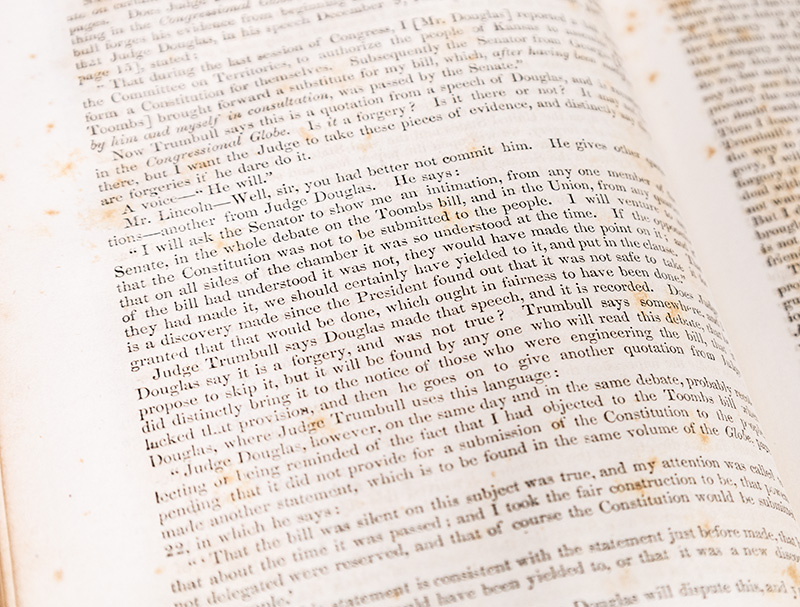 pages. Does Judge
thing in the Congressional Globe
bull forges his evidence from beginning
that Judge Douglas, in his speech December 9,
page 15], stated:
"That during the last session of Congress, I [Mr. Douglas] reported a
the Committee on Territories, to authorize the people of Kansas to
form a Constitution for themselves. Subsequently the Senator from
Toombs] brought forward a substitute for my bill, which, after having been
by him and myself in consultation, was passed by the Senate."
Now Trumbull says this is a quotation from a speech of Douglas, and is
in the Congressional Globe. Is it a forgery? Is it there or not? It may
there, but I want the Judge to take these pieces of evidence, and distinctly
are forgeries if he dare do it.
A voice—"He will."
Mr. Lincoln—Well, sir, you had better not commit him. He gives other
tions—another from Judge Douglas. He says:
"I will ask the Senator to show me an intimation, from any one member of
Senate, in the whole debate on the Toombs bill, and in the Union, from any
that the Constitution was not to be submitted to the people. I will venture
that on all sides of the chamber it was so understood at the time. If the
of the bill had understood it was not, they would have made the point on it; and
they had made it, we should certainly have yielded to it, and put in the clause.
is a discovery made since the President found out that it was not safe to take it
granted that that would be done, which ought in fairness to have been done."
Judge Trumbull says Douglas made that speech, and it is recorded. Does
Douglas say it is a forgery, and was not true? Trumbull says somewhere, and
propose to skip it, but it will be found by any one who will read this debate, that
did distinctly bring it to the notice of those who were engineering the bill, that
lacked that provision, and then he goes on to give another quotation from
Douglas, where Judge Trumbull uses this language:
"Judge Douglas, however, on the same day and in the same debate, probably
lecting or being reminded of the fact that I had objected to the Toombs bill
pending that it did not provide for a submission of the Constitution to the people
made another statement, which is to be found in the same volume of the Globe,
22, in which he says:
"'That the bill was silent on this subject was true, and my attention was called
that about the time it was passed; and I took the fair construction to be, that powers
not delegated were reserved, and that of course the Constitution would be
statement is consistent with the statement just before made, that
have been yielded to, or that it was a new
Douglas will dispute this, and